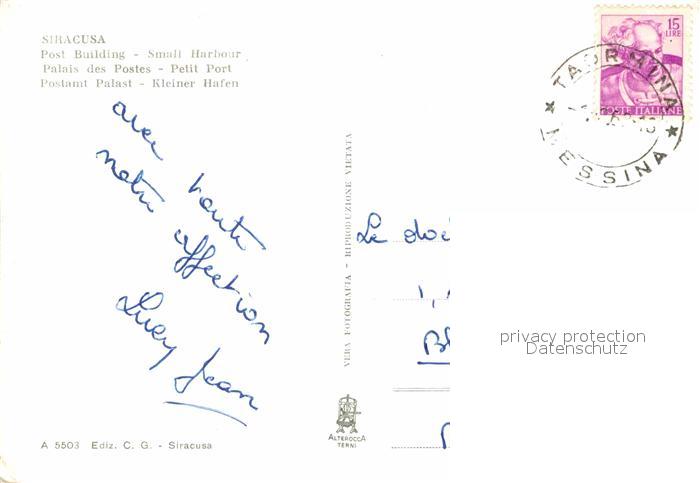 SIRACUSA
Post Building - Small Harbour
Palais des Postes - Petit Port
Postamt Palast - Kleiner Hafen
avec toute
notre affection
Lucy Jean
VERA FOTOGRAFIA - RIPRODUZIONE VIETATA
15
LIRE
POSTE ITALIANE
TAORMINA
MESSINA
Le
privacy protection
Datenschutz
ALTEROCCA
TERNI
A 5503 Ediz. C. G. - Siracusa